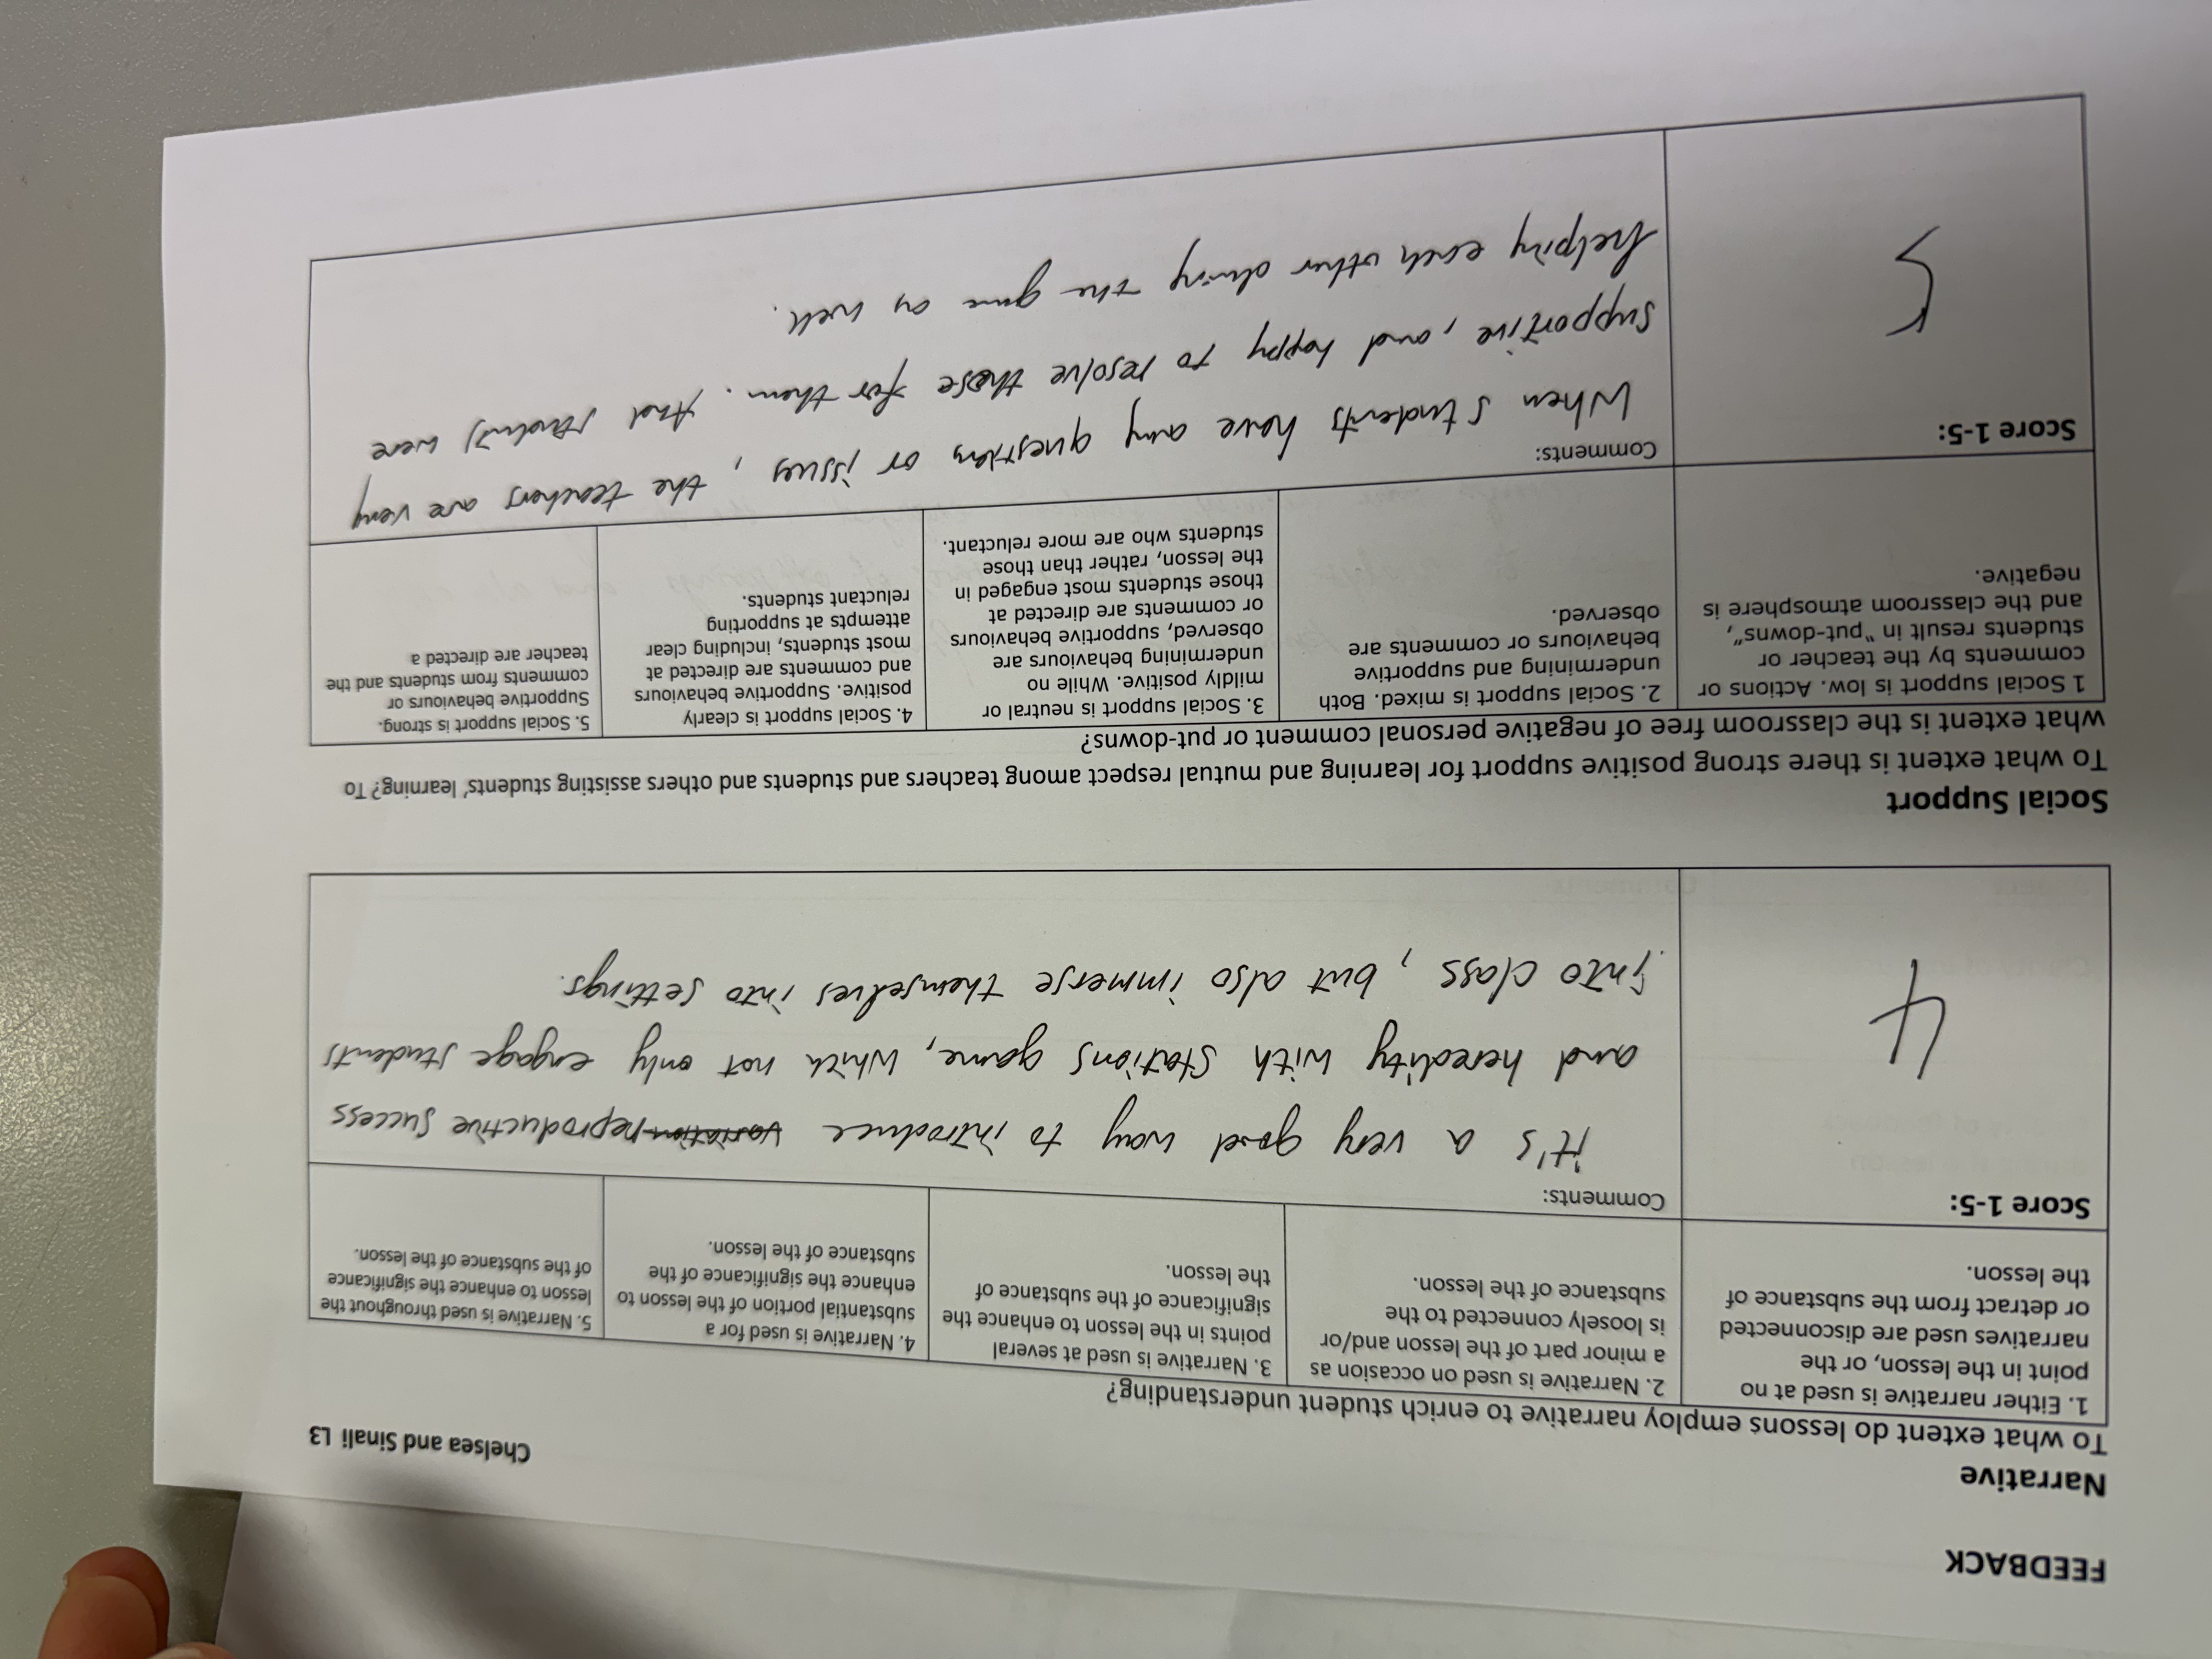 FEEDBACK
Narrative
Chelsea and Sinali L3
To what extent do lessons employ narrative to enrich student understanding?
1. Either narrative is used at no
point in the lesson, or the
narratives used are disconnected
or detract from the substance of
the lesson.
2. Narrative is used on occasion as
a minor part of the lesson and/or
is loosely connected to the
substance of the lesson.
3. Narrative is used at several
points in the lesson to enhance the
significance of the substance of
the lesson.
4. Narrative is used for a
substantial portion of the lesson to
enhance the significance of the
substance of the lesson.
5. Narrative is used throughout the
lesson to enhance the significance
of the substance of the lesson.
Score 1-5:
4
Comments:
it's a very good way to introduce variation reproductive success
and heredity with stations game, which not only engage students
into class, but also immerse themselves into settings.
Social Support
To what extent is there strong positive support for learning and mutual respect among teachers and students and others assisting students' learning? To
what extent is the classroom free of negative personal comment or put-downs?
1 Social support is low. Actions or
comments by the teacher or
students result in "put-downs",
and the classroom atmosphere is
negative.
2. Social support is mixed. Both
undermining and supportive
behaviours or comments are
observed.
3. Social support is neutral or
mildly positive. While no
undermining behaviours are
observed, supportive behaviours
or comments are directed at
those students most engaged in
the lesson, rather than those
students who are more reluctant.
4. Social support is clearly
positive. Supportive behaviours
and comments are directed at
most students, including clear
attempts at supporting
reluctant students.
5. Social support is strong.
Supportive behaviours or
comments from students and the
teacher are directed a
Score 1-5:
5
Comments:
When students have any questions or issues, the teachers are very
supportive, and happy to resolve those for them. And students were
helping each other during the game as well.